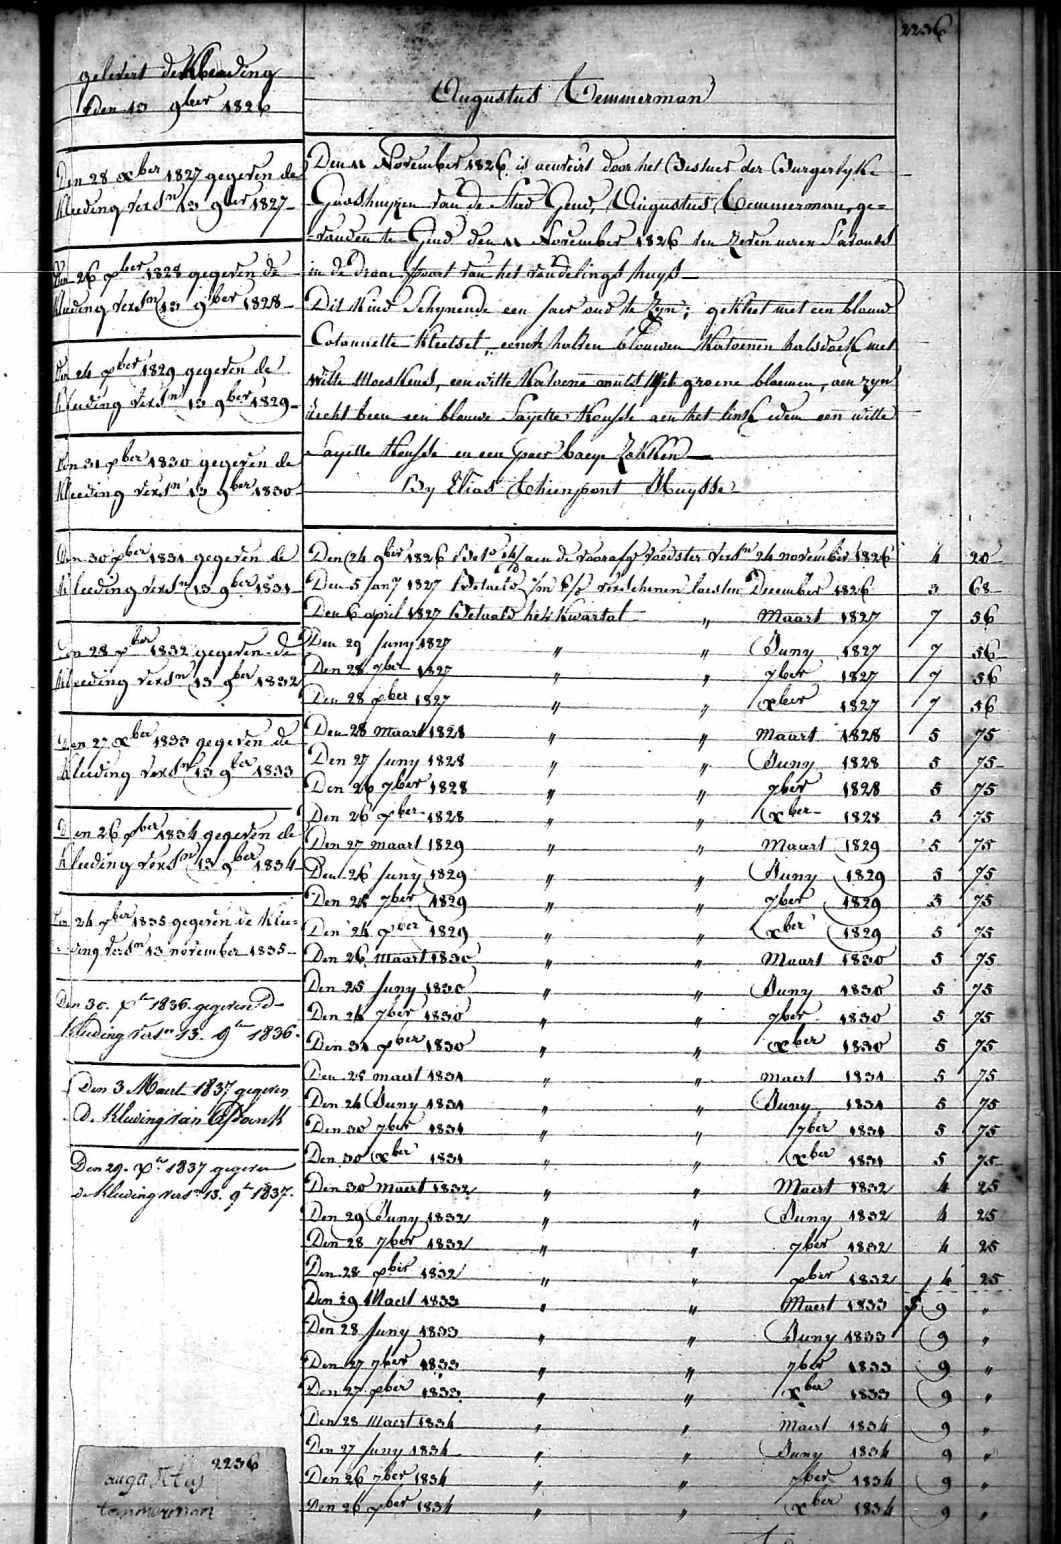 2236
gelevert de Kleeding
den 13 9ber 1826
Den 28 xber 1827 gegeven de
Kleeding versn 13 9ber 1827
Den 26 xber 1828 gegeven de
Kleeding versn 13 9ber 1828
Den 24 xber 1829 gegeven de
Kleeding versn 13 9ber 1829
Den 31 xber 1830 gegeven de
Kleeding versn 13 9ber 1830
Den 30 xber 1831 gegeven de
Kleeding versn 13 9ber 1831
Den 28 xber 1832 gegeven de
Kleeding versn 13 9ber 1832
Den 27 xber 1833 gegeven de
Kleeding versn 13 9ber 1833
Den 26 xber 1834 gegeven de
Kleeding versn 13 9ber 1834
Den 24 xber 1835 gegeven de Klee=
=ding versn 13 november 1835
Den 30. xer 1836. gegeven d
Kleeding versn 13. 9er 1836.
Den 3 Maert 1837 gegeven
d. Kleeding van
Den 29. xer 1837 gegeven
de Kleeding versn 13. 9er 1837.
2236
augustus
temmerman
Augustus Temmerman
Den 11 November 1826 is aenveirt door het Bestuer der Burgerlyke
Godshuyzen van de Stad Gend, Augustus Temmerman, ge=
=vonden te Gend den 11 November 1826 ten zeven uren s'avonds
in de draai van het vondelings huys
Dit Kind Schynende een jaer oud te zyn; gekleet met een blauw
Cotonnette Kleetset, eenen halven blouwen Katoenen halsdoek met
witte een witte Katoene mutse met groene bloemen, aen zyn
recht been een blauwe Sayette Kousse aen het linsk idem een witte
Sayette Kousse en een paer baeye
By Elias Thienpont Huysse
Den 24 9ber 1826 aen de voorafg voedster versn 24 november 1826 4 20
Den 5 Jany 1827 Betaeld verschenen laesten December 1826 3 68
Den 6 april 1827 Betaeld het kwartal " Maart 1827 7 56
Den 29 Juny 1827 " " Juny 1827 7 56
Den 28 7ber 1827 " " 7ber 1827 7 56
Den 28 xber 1827 " " xber 1827 7 56
Den 28 maart 1828 " " Maart 1828 5 75
Den 27 Juny 1828 " " Juny 1828 5 75
Den 26 7ber 1828 " " 7ber 1828 5 75
Den 26 xber 1828 " " xber 1828 5 75
Den 27 maart 1829 " " Maart 1829 5 75
Den 26 Juny 1829 " " Juny 1829 5 75
Den 25 7ber 1829 " " 7ber 1829 5 75
Den 24 xber 1829 " " xber 1829 5 75
Den 26 Maart 1830 " " Maart 1830 5 75
Den 25 Juny 1830 " " Juny 1830 5 75
Den 24 7ber 1830 " " 7ber 1830 5 75
Den 31 xber 1830 " " xber 1830 5 75
Den 25 maert 1831 " " maert 1831 5 75
Den 24 Juny 1831 " " Juny 1831 5 75
Den 30 7ber 1831 " " 7ber 1831 5 75
Den 30 xber 1831 " " xber 1831 5 75
Den 30 maert 1832 " " Maert 1832 4 25
Den 29 Juny 1832 " " Juny 1832 4 25
Den 28 7ber 1832 " " 7ber 1832 4 25
Den 28 xber 1832 " " xber 1832 4 25
Den 29 Maert 1833 " " Maert 1833 f 9 "
Den 28 Juny 1833 " " Juny 1833 9 "
Den 27 7ber 1833 " " 7ber 1833 9 "
Den 27 xber 1833 " " xber 1833 9 "
Den 28 Maert 1834 " " Maert 1834 9 "
Den 27 Juny 1834 " " Juny 1834 9 "
Den 26 7ber 1834 " " 7ber 1834 9 "
Den 26 xber 1834 " " xber 1834 9 "